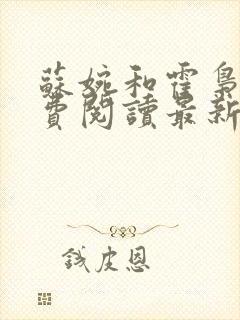 蘇婉和霍梟
費閱讀最新
錢皮恩